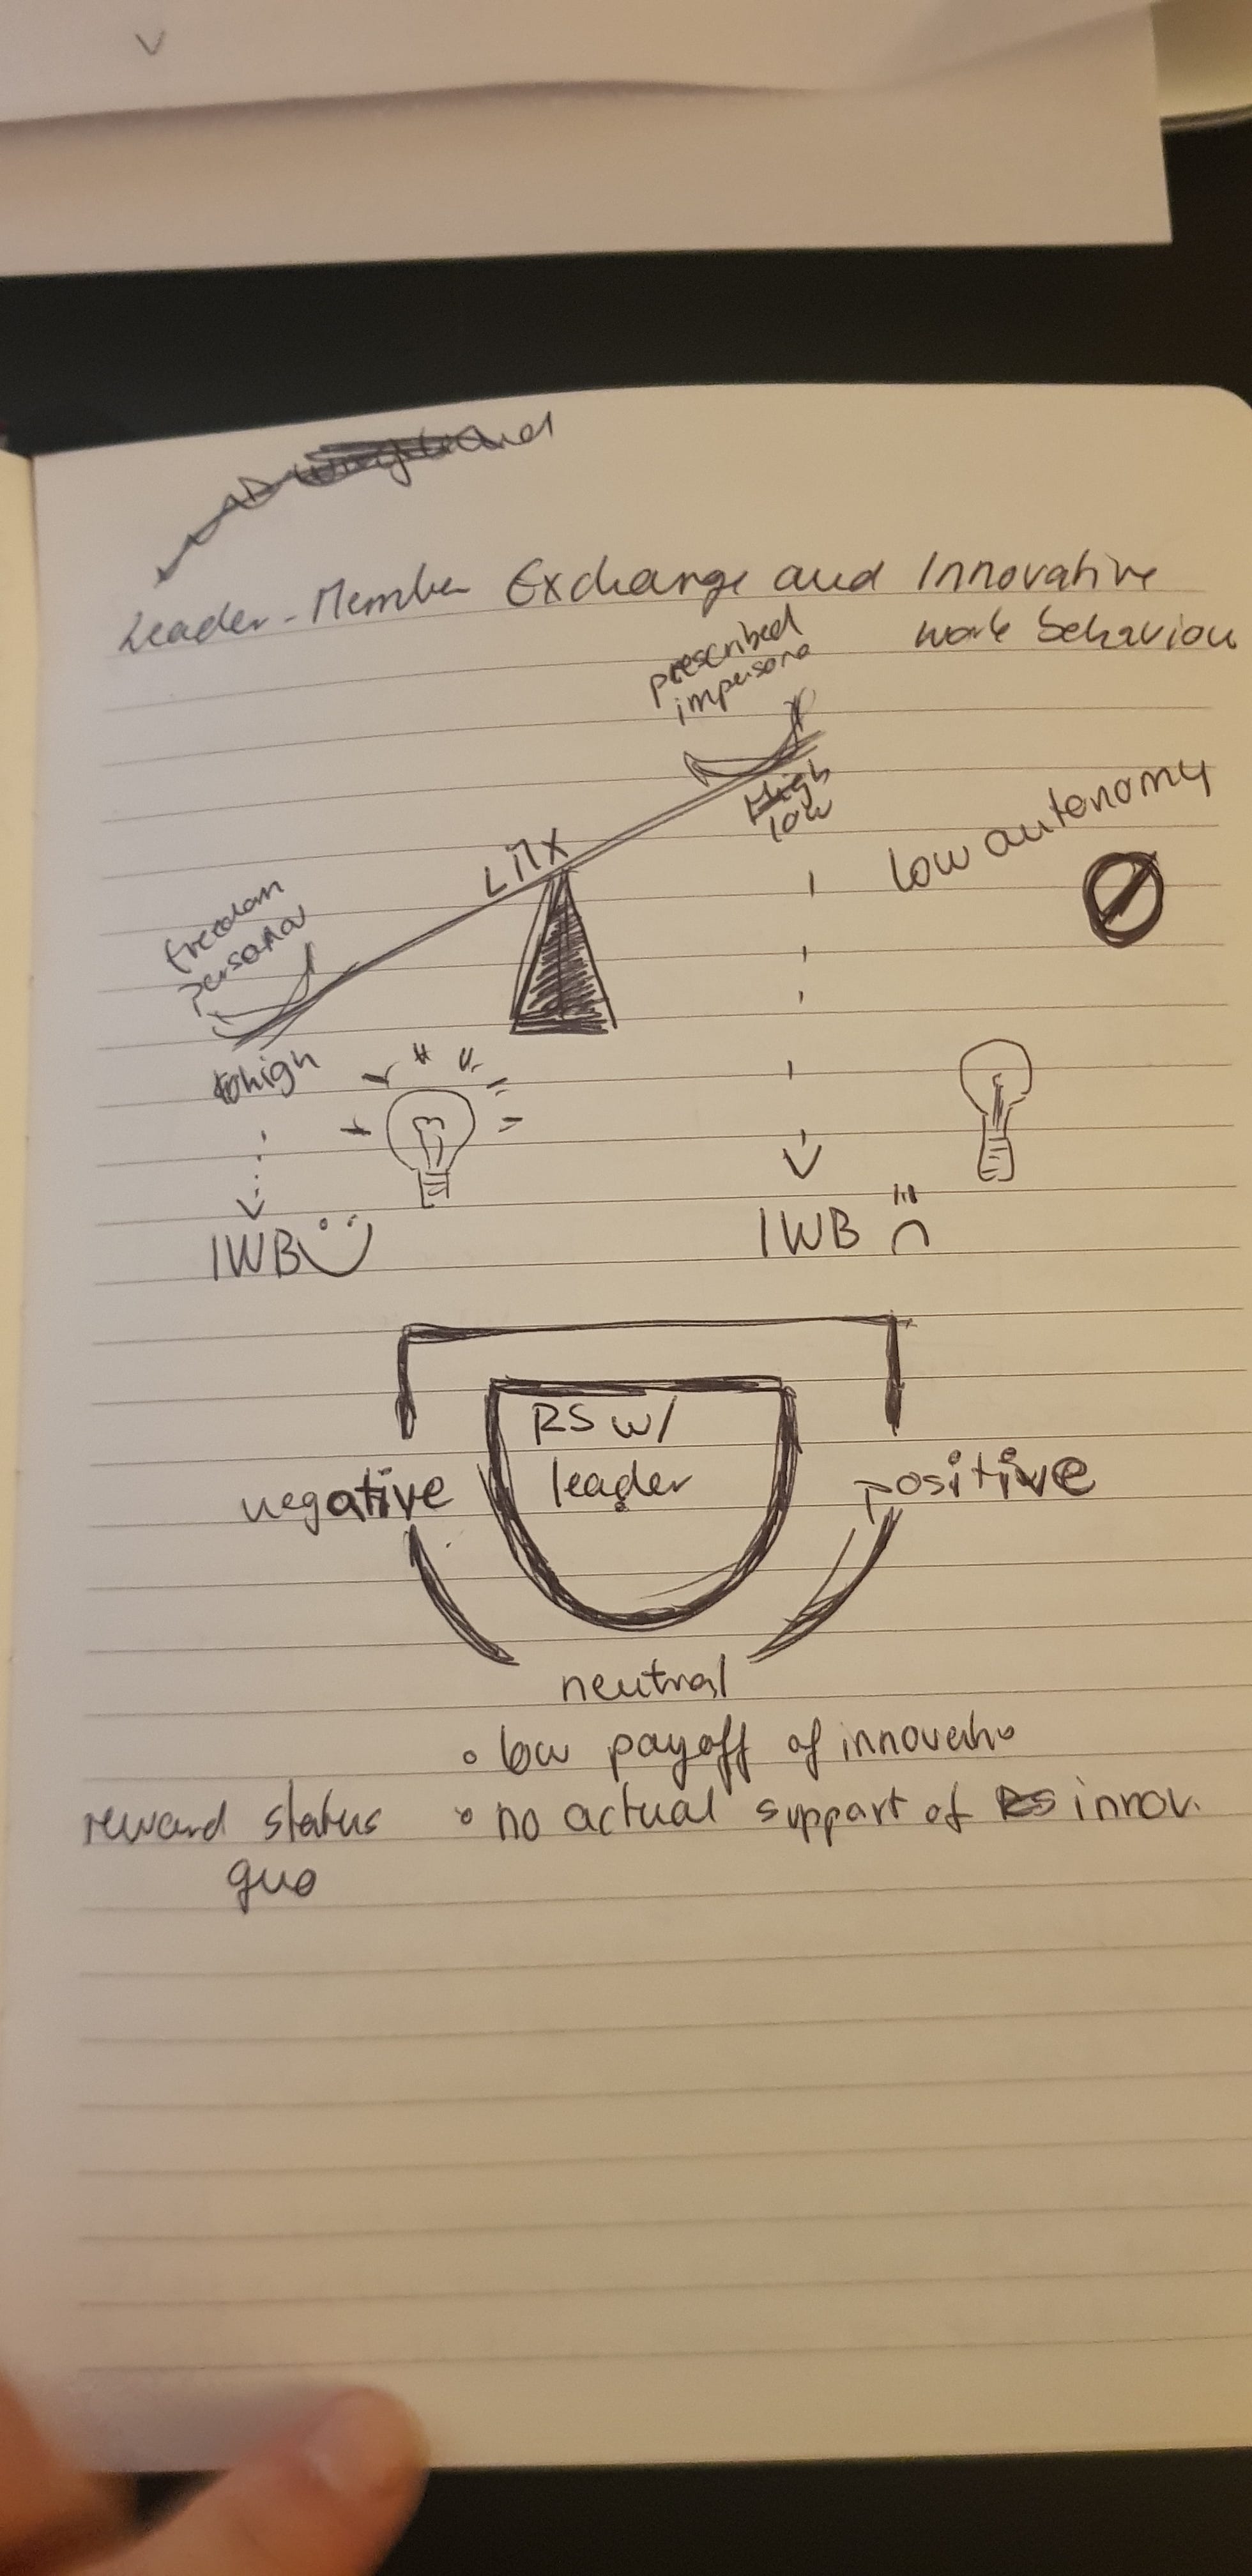 Leader-Member Exchange and Innovative
work behaviour
prescribed
impersona
low
LMX
low autonomy
freedom
personal
high
IWB
IWB
RS w/
leader
negative
positive
neutral
• low payoff of innovatio
reward status
quo
• no actual support of innov.